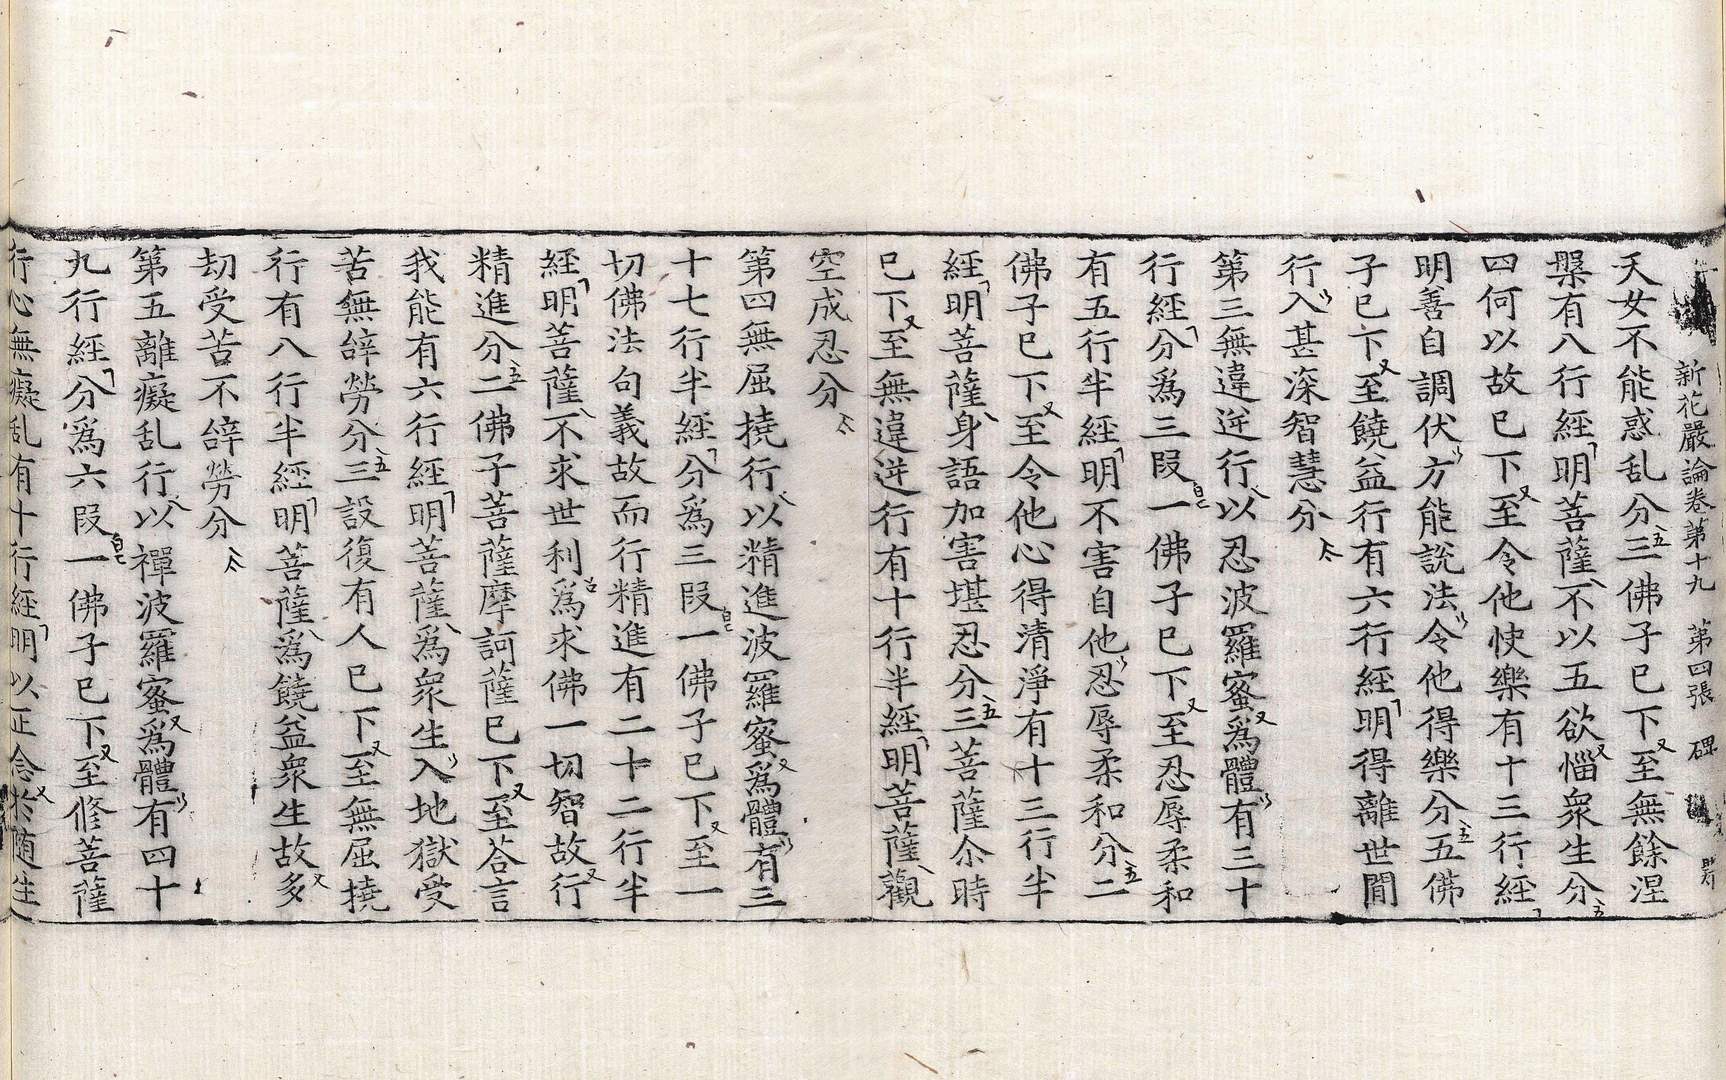 新花嚴論卷第十九 第四張 碑
天女不能惑乱分三佛子已下至無餘涅
槃有八行經明菩薩不以五欲惱衆生分
四何以故已下至令他快樂有十三行經
明善自調伏方能說法令他得樂分五佛
子已下至饒益行有六行經明得離世間
行入甚深智慧分
第三無違逆行以忍波羅蜜爲體有三十
行經分爲三段一佛子已下至忍辱柔和
有五行半經明不害自他忍辱柔和分二
佛子已下至令他心得清淨有十三行半
經明菩薩身語加害堪忍分三菩薩尒時
已下至無違逆行有十行半經明菩薩觀
空成忍分
第四無屈撓行以精進波羅蜜爲體有三
十七行半經分爲三段一佛子已下至一
切佛法句義故而行精進有二十二行半
經明菩薩不求世利爲求佛一切智故行
精進分二佛子菩薩摩訶薩已下至荅言
我能有六行經明菩薩爲衆生入地獄受
苦無辞勞分三設復有人已下至無屈撓
行有八行半經明菩薩爲饒益衆生故多
劫受苦不辞勞分
第五離癡乱行以禪波羅蜜爲體有四十
九行經分爲六段一佛子已下至修菩薩
行心無癡乱有十行經明以正念於隨生